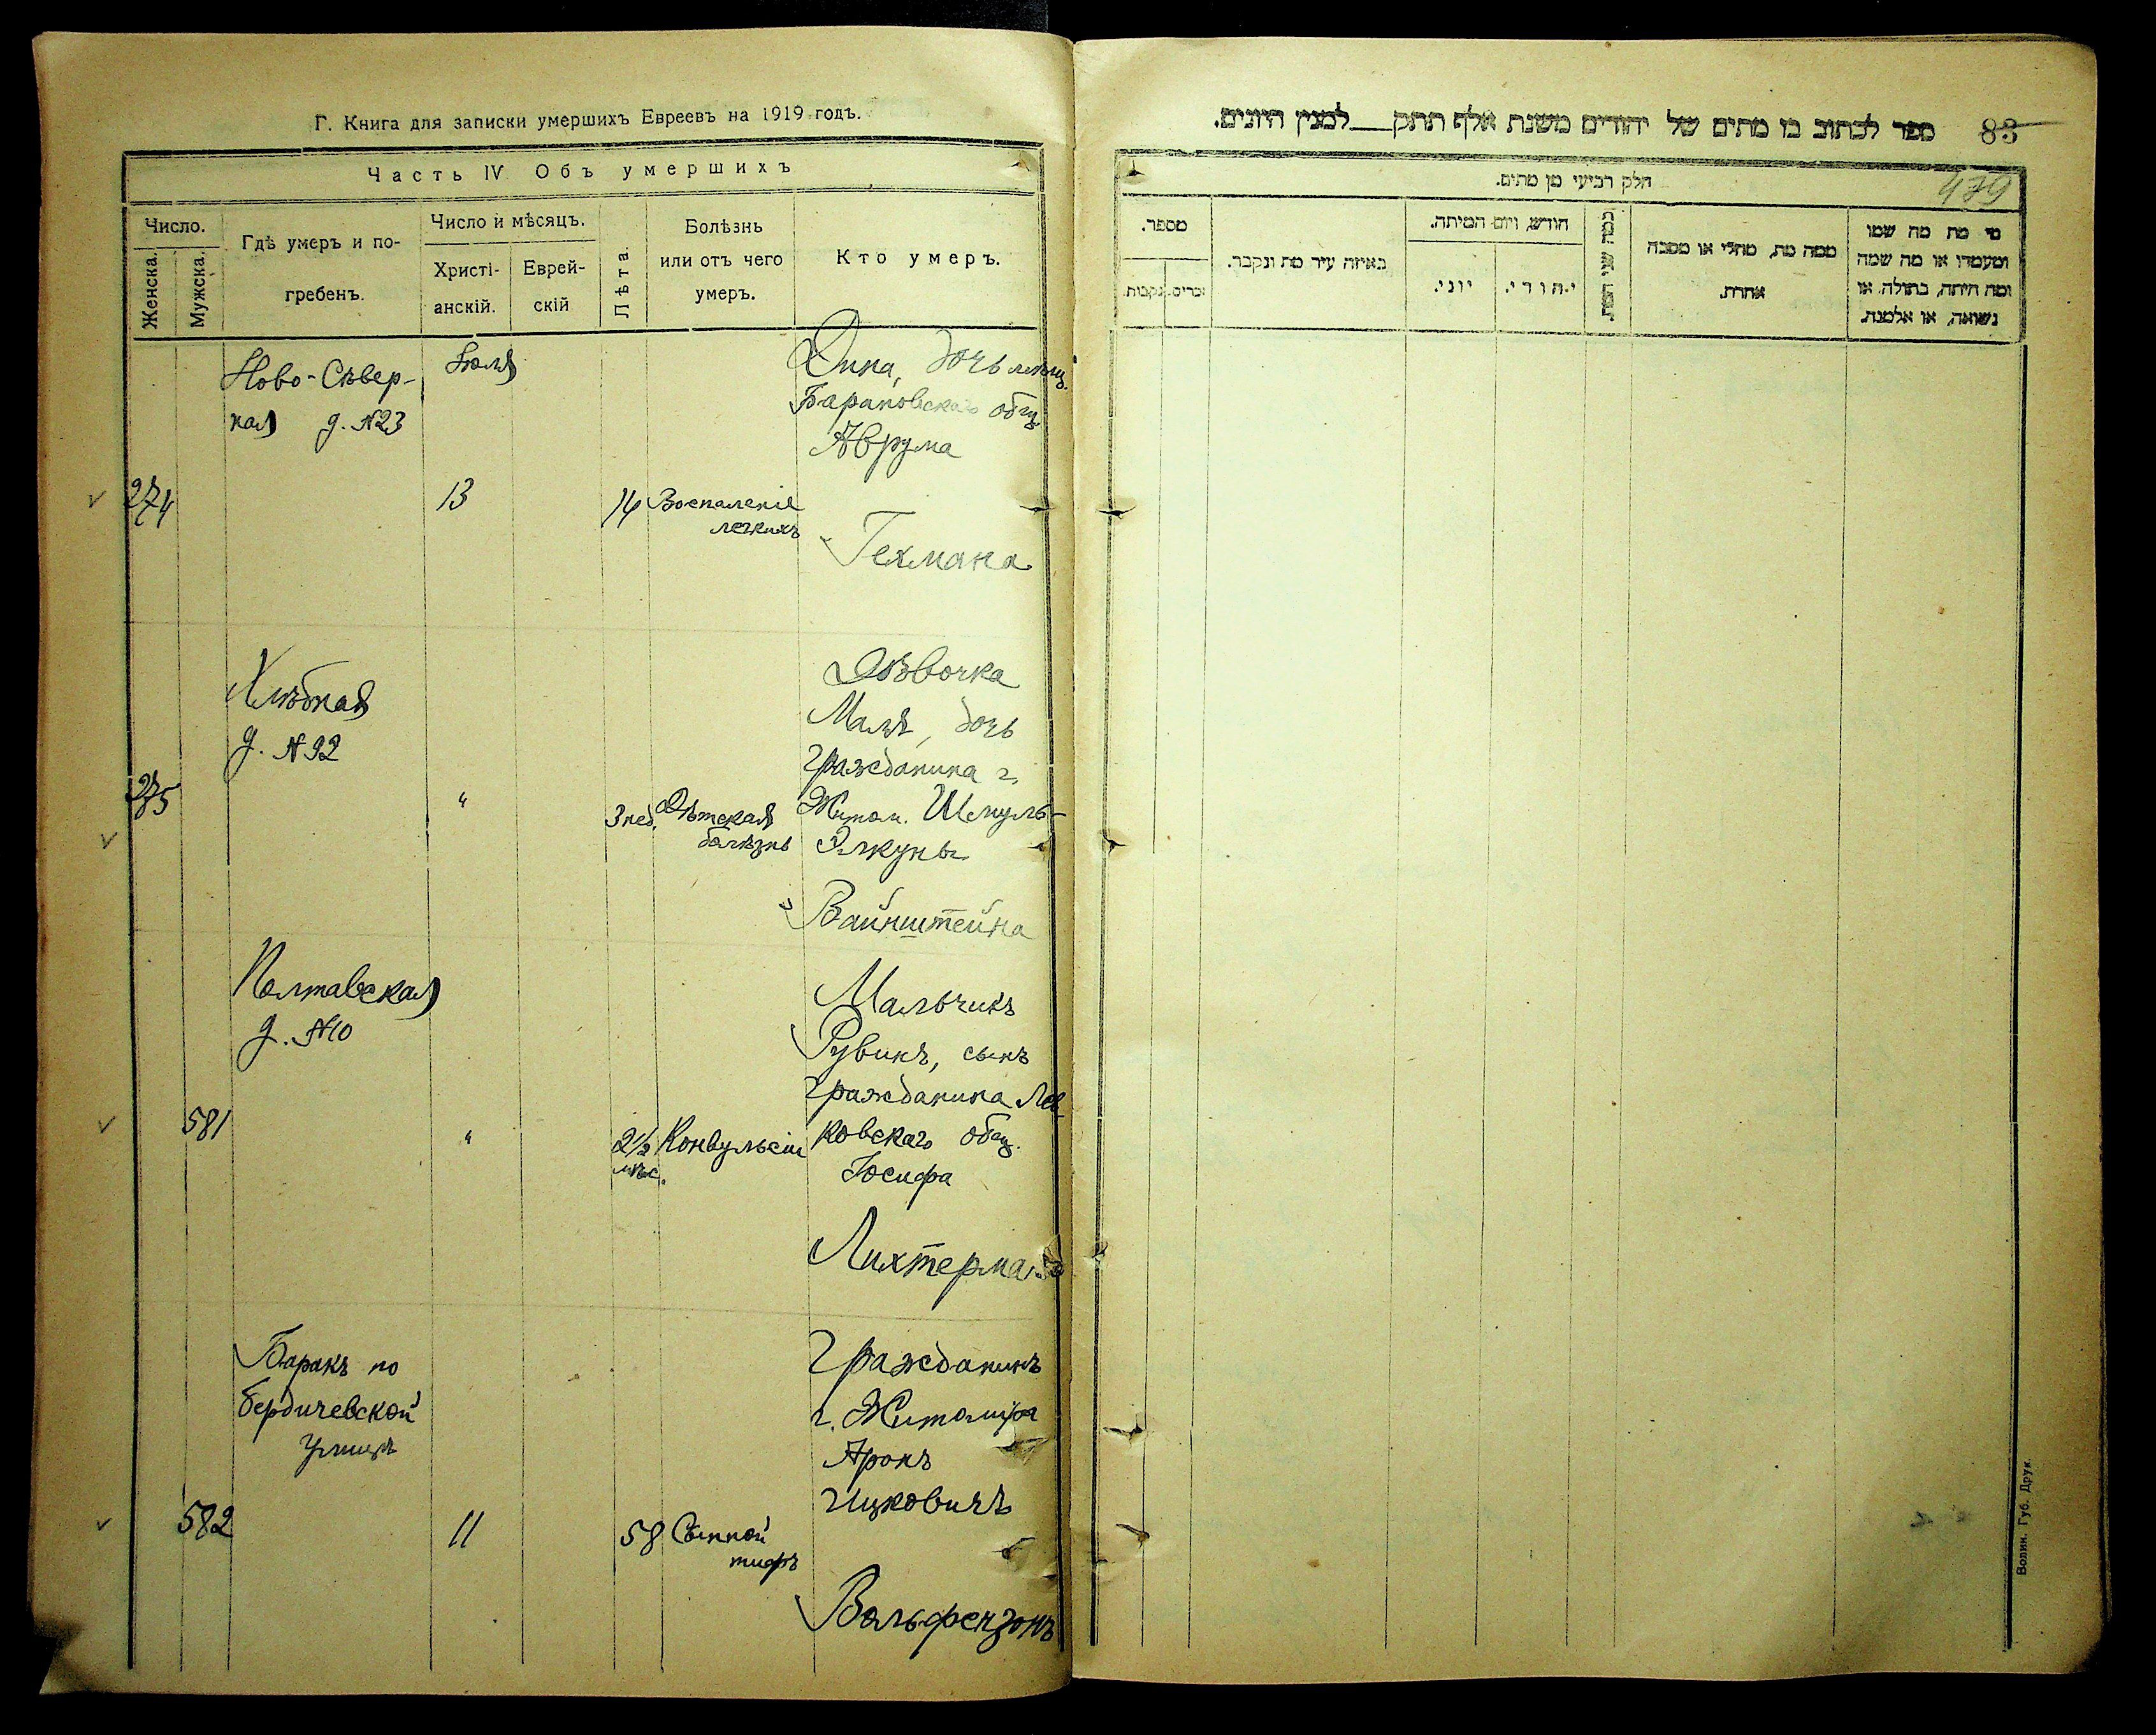 Г. Книга для записки умершихъ Евреевъ на 1919 годъ.
Часть IV Объ умершихъ
Число.
Женска.
Мужска.
Гдѣ умеръ и по-
гребенъ.
Число и мѣсяцъ.
Христі-
анскій.
Еврей-
скій
Лѣта.
Болѣзнь
или отъ чего
умеръ.
Кто умеръ.
Ново-Сѣвер-
ная д. №23
Іюля
274
13
14
Воспаленіе
легкихъ
Дина, дочь мѣщ.
Барановскаго общ.
Аврума
Гехмана
Хлѣбная
д. №92
275
"
3 нед.
Дѣтская
болѣзнь
Дѣвочка
Маля, дочь
гражданина г.
Житом. Шмуль-
Элкуны
Вайнштейна
Полтавская
д. №10
581
"
2½
мѣс.
Конвульсіи
Мальчикъ
Рувинъ, сынъ
гражданина Лев-
ковскаго общ.
Іосифа
Лихтермана
Баракъ по
бердичевской
улицѣ
582
11
58
Сыпной
тифъ
Гражданинъ
г. Житомира
Аронъ
Ицковичъ
Вольфензонъ
ספר לכתוב בו מתים של יהודים משנת אלף תתק___למנין היונים.
83
479
חלק רביעי מן מתים.
מספר.
זכרים.
נקבות.
באיזה עיר מת ונקבר.
חודש, ויום המיתה.
יוני.
יהודי.
כמה שני המת.
ממה מת, מחלי או מסבה
אחרת.
מי מת מה שמו
ומעמדו או מה שמה
ומה היתה, בתולה, או
נשואה, או אלמנה.
Волин. Губ. Друк.